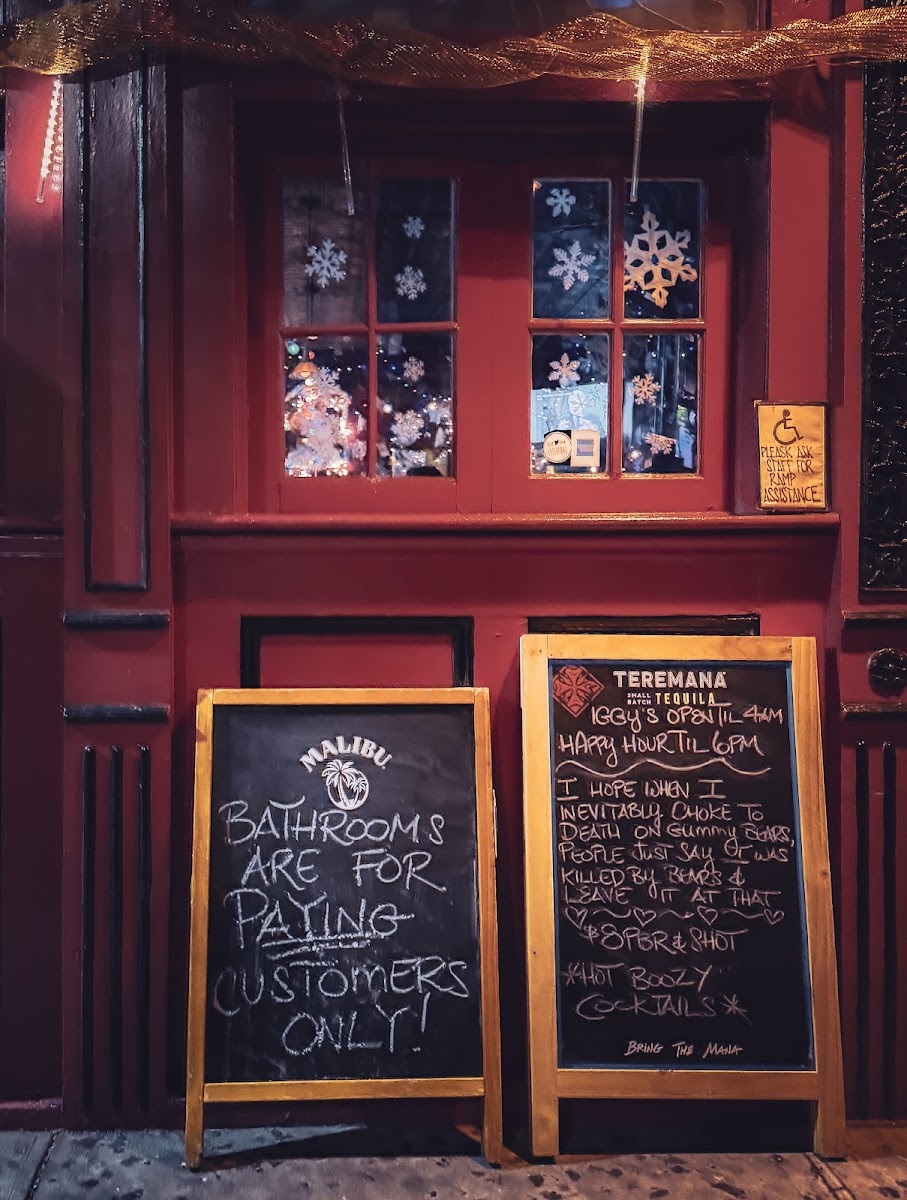 PLEASK ASK
STAFF FOR
RAMP
ASSISTANCE
MALIBU
BATHROOMS
ARE FOR
PAYING
CUSTOMERS
ONLY!
TEREMANA
SMALL BATCH TEQUILA
IGGY'S OPEN TIL 4AM
HAPPY HOUR TIL 6PM
I HOPE WHEN I
INEVITABLY CHOKE TO
DEATH ON GUMMY BEARS,
PEOPLE JUST SAY I WAS
KILLED BY BEARS &
LEAVE IT AT THAT
$8 PBR & SHOT
*HOT BOOZY
COCKTAILS*
BRING THE MANA